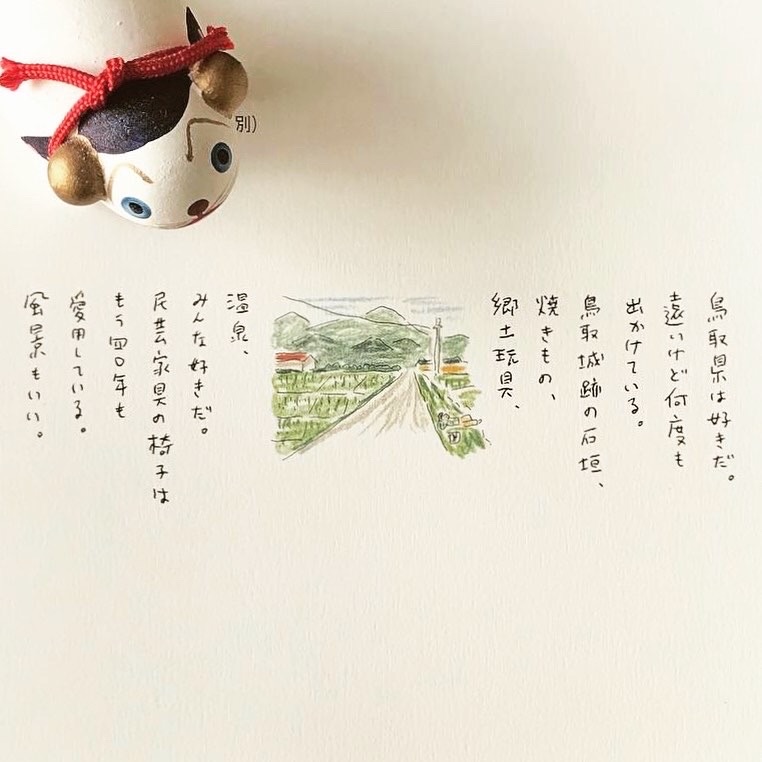 別）
鳥取県は好きだ。
遠いけど何度も
出かけている。
鳥取城跡の石垣、
焼きもの、
郷土玩具、
温泉、
みんな好きだ。
民芸家具の椅子は
もう四〇年も
愛用している。
風景もいい。